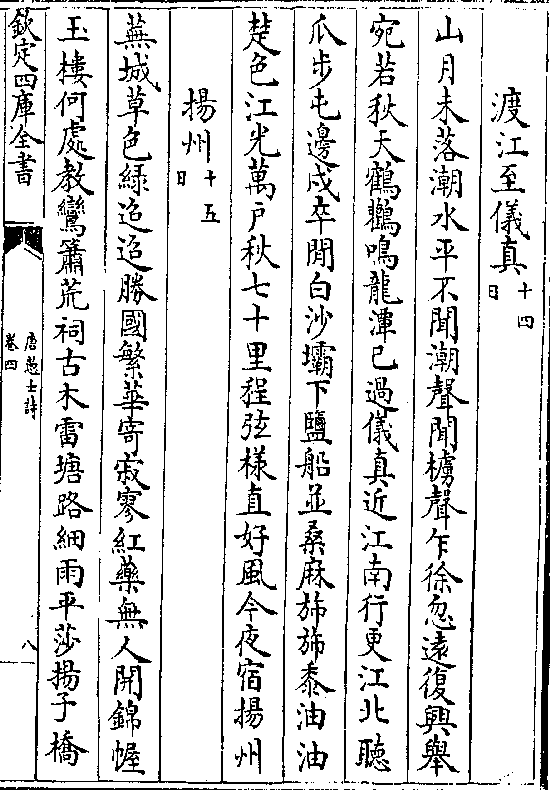 渡江至儀真十四日
山月未落潮水平不聞潮聲聞櫓聲乍徐忽遠復興舉
宛若秋天鸖鸛鳴龍潭已過儀真近江南行更江北聽
瓜步屯邊戍卒閒白沙壩下鹽船並桑麻斾斾黍油油
楚色江光萬戸秋七十里程弦様直好風今夜宿揚州
揚州十五日
蕪城草色緑迢迢勝國繁華寄寂寥紅藥無人開錦幄
玉樓何處教鸞簫荒祠古木雷塘路細雨平莎揚子橋
欽定四庫全書
唐愚士詩
卷四
八